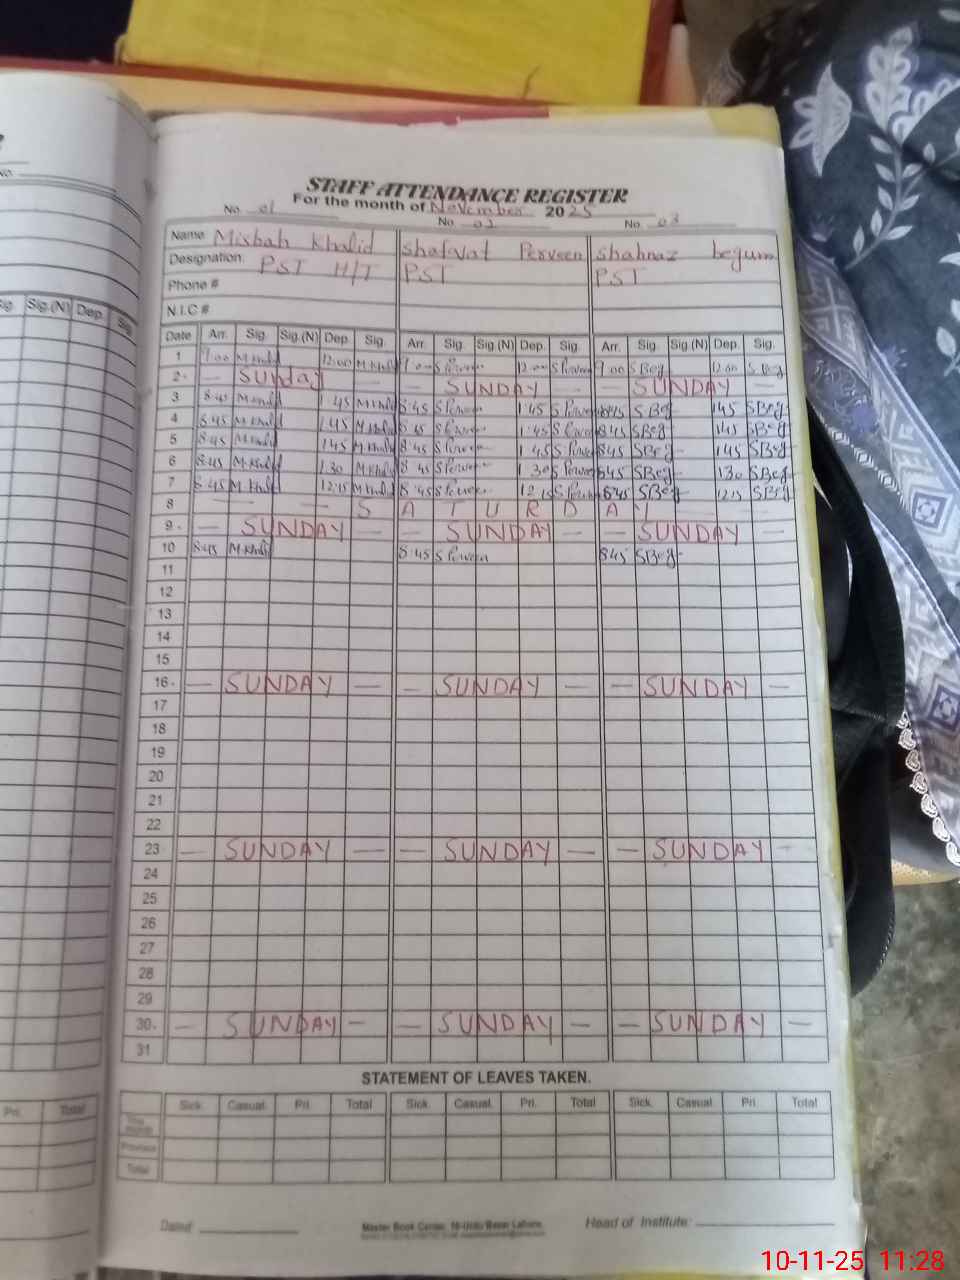 STAFF ATTENDANCE REGISTER
For the month of November 2025
No. 01 No. 02 No. 03
Name Misbah Khalid Shafqat Perveen Shahnaz begum
Designation: PST H/T PST PST
Phone #
N.I.C #
Date Arr. Sig. Sig.(N) Dep. Sig. Arr. Sig. Sig.(N) Dep. Sig. Arr. Sig. Sig.(N) Dep. Sig.
1 9:00 M.Khalid 12:00 M.Khalid 9:00 S Perveen 12:00 S Perveen 9:00 S Beg 12:00 S Beg
2 - Sunday - - SUNDAY - - SUNDAY -
3 8:45 M.Khalid 1:45 M.Khalid 8:45 S Perveen 1:45 S Perveen 8:45 S Beg 1:45 S Beg
4 8:45 M.Khalid 1:45 M.Khalid 8:45 S Perveen 1:45 S Perveen 8:45 S Beg 1:45 S Beg
5 8:45 M.Khalid 1:45 M.Khalid 8:45 S Perveen 1:45 S Perveen 8:45 S Beg 1:45 S Beg
6 8:45 M.Khalid 1:30 M.Khalid 8:45 S Perveen 1:30 S Perveen 8:45 S Beg 1:30 S Beg
7 8:45 M.Khalid 12:15 M.Khalid 8:45 S Perveen 12:15 S Perveen 8:45 S Beg 12:15 S Beg
8 - - - S A T U R D A Y
9 - SUNDAY - - SUNDAY - - SUNDAY -
10 8:45 M.Khalid 8:45 S Perveen 8:45 S Beg
11
12
13
14
15
16 - SUNDAY - - SUNDAY - - SUNDAY -
17
18
19
20
21
22
23 - SUNDAY - - SUNDAY - - SUNDAY -
24
25
26
27
28
29
30 - SUNDAY - - SUNDAY - - SUNDAY -
31
STATEMENT OF LEAVES TAKEN.
Sick. Casual. Pri. Total Sick. Casual. Pri. Total Sick. Casual. Pri. Total
This month
Previous
Total
Dated
Master Book Center, 18-Urdu Bazar Lahore.
Head of Institute:
No.
Sig. Sig.(N) Dep. Sig.
Pri. Total
10-11-25 11:28